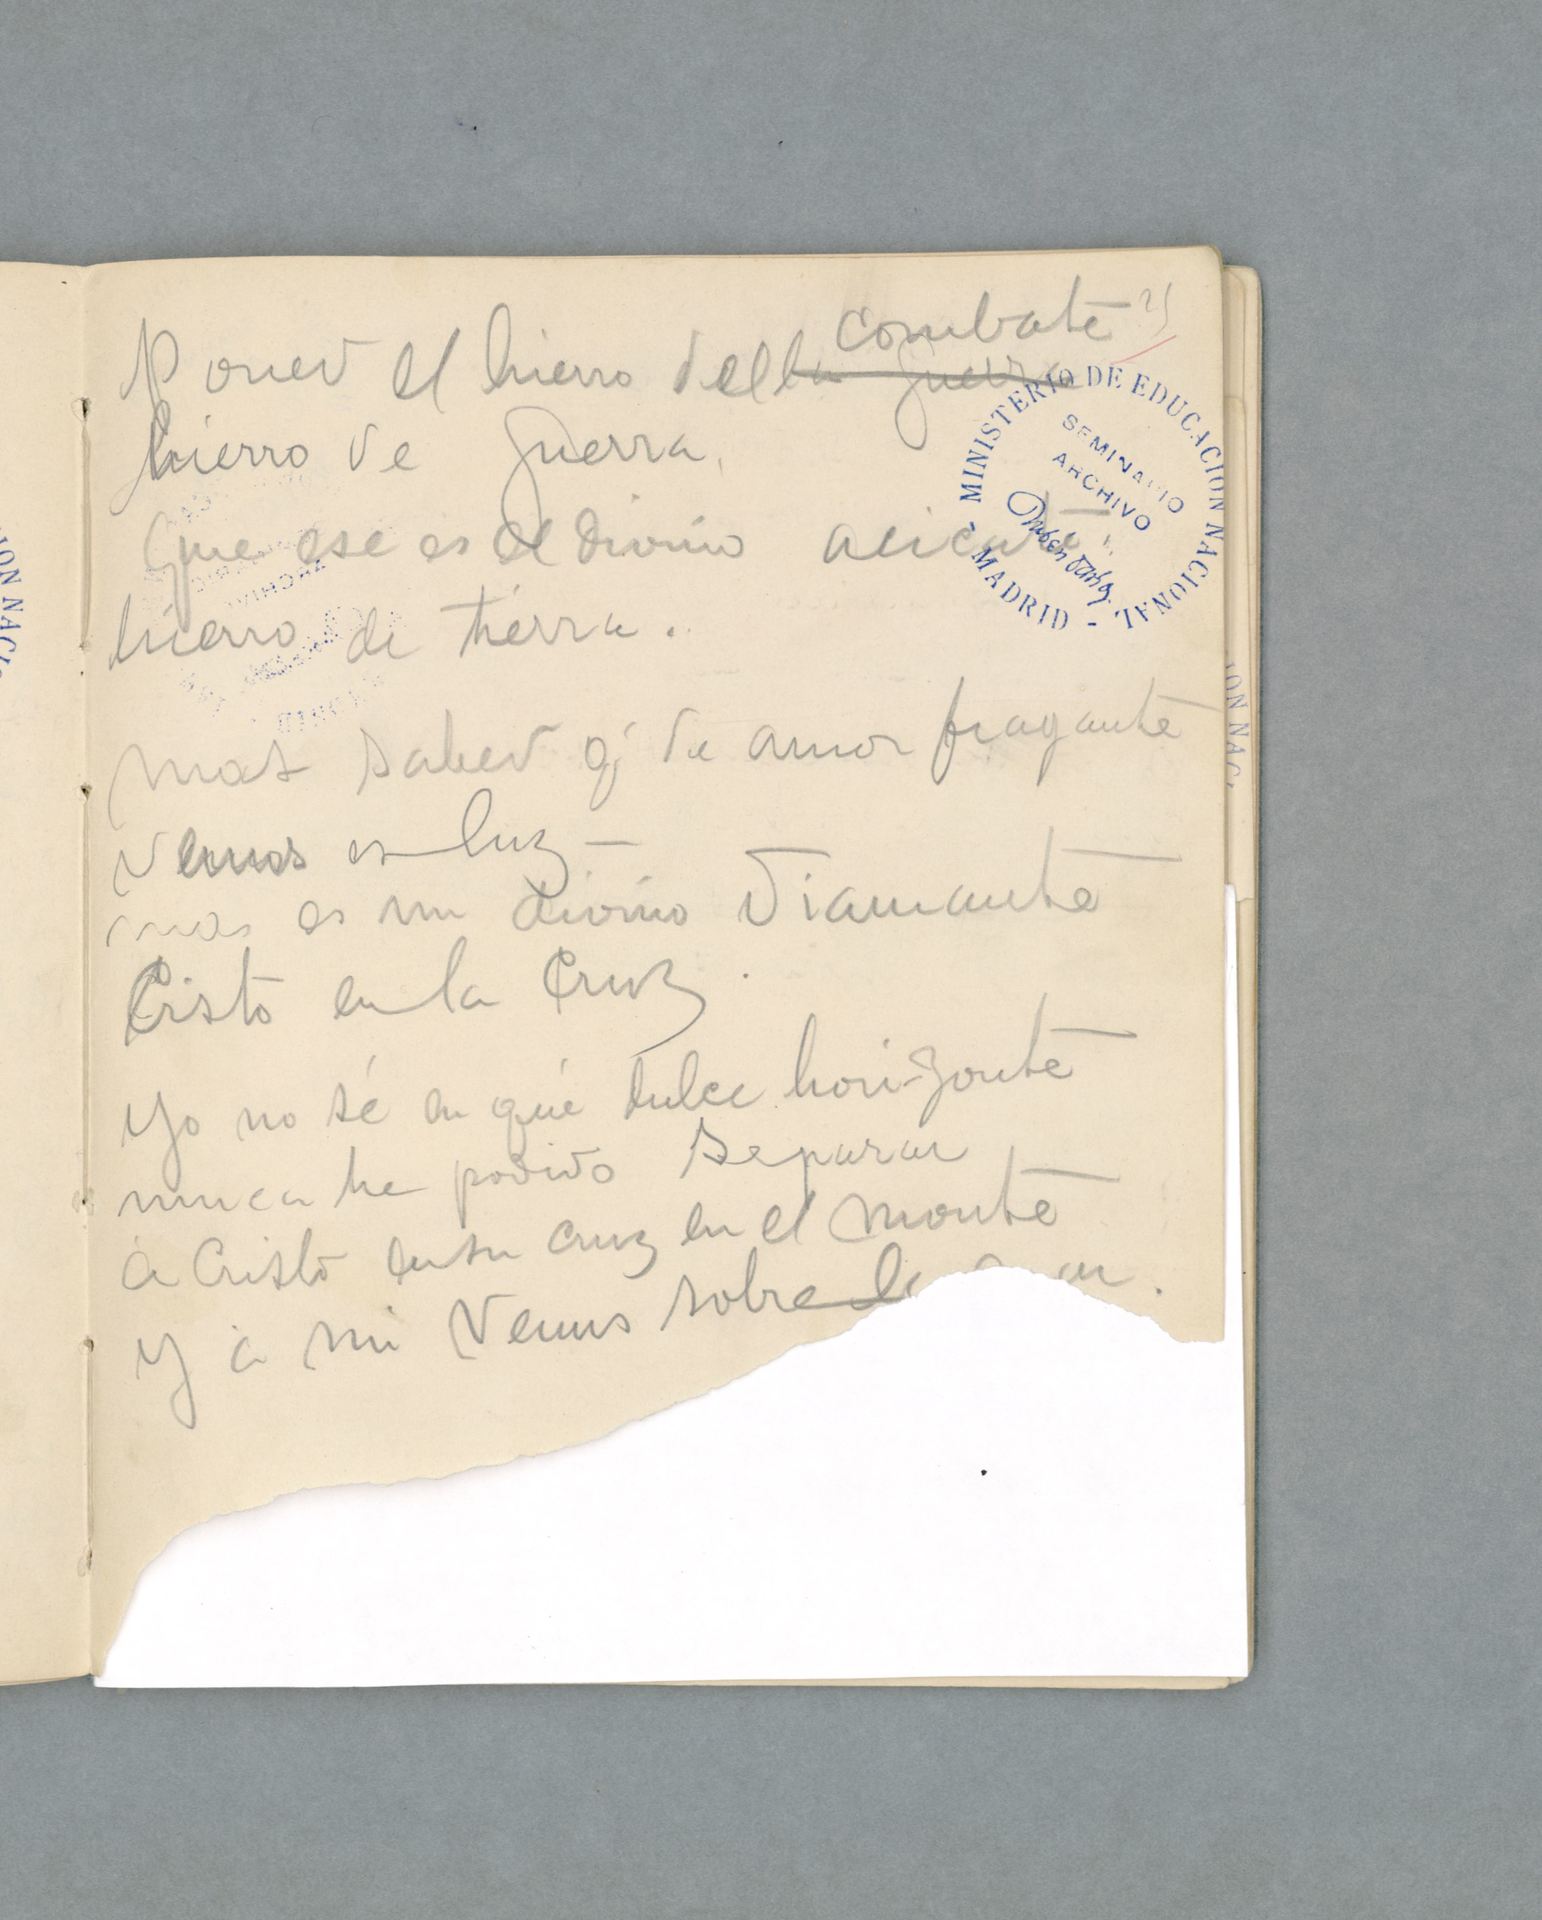 combate 25
Poned el hierro del la guerra
hierro de guerra,
Que ese es el divino acicate
hierro de tierra.
mas sabed q' de amor fragante
Venus es luz –
mas es un divino diamante
Cristo en la Cruz.
Yo no sé en qué dulce horizonte
nunca he podido separar
a Cristo en su cruz en el monte
y a mi Venus sobre
MINISTERIO DE EDUCACION NACIONAL - MADRID -
SEMINARIO
ARCHIVO
Rubén Darío
ION NAC